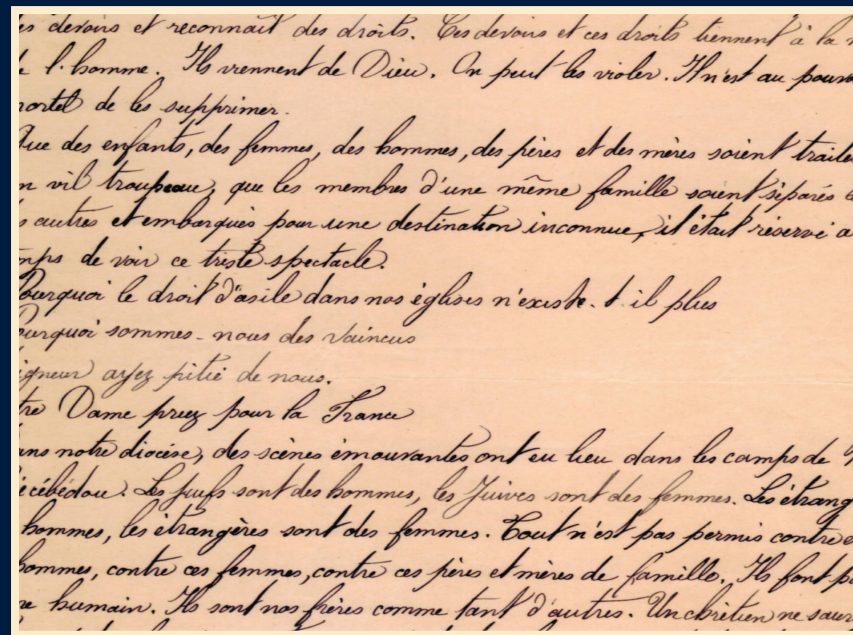 es devoirs et reconnaît des droits. Ces devoirs et ces droits tiennent à la n
e l'homme. Ils viennent de Dieu. On peut les violer. Il n'est au pouv
mortel de les supprimer.
Que des enfants, des femmes, des hommes, des pères et des mères soient traité
n vil troupeau, que les membres d'une même famille soient séparés
s autres et embarqués pour une destination inconnue, il était réservé a
mps de voir ce triste spectacle.
Pourquoi le droit d'asile dans nos églises n'existe-t-il plus
ourquoi sommes-nous des vaincus
igneur ayez pitié de nous.
tre Dame priez pour la France
ans notre diocèse, des scènes émouvantes ont eu lieu dans les camps de N
écébédou. Les juifs sont des hommes, les Juives sont des femmes. Les étrang
hommes, les étrangères sont des femmes. Tout n'est pas permis contre e
hommes, contre ces femmes, contre ces pères et mères de famille. Ils font p
re humain. Ils sont nos frères comme tant d'autres. Un chrétien ne saur